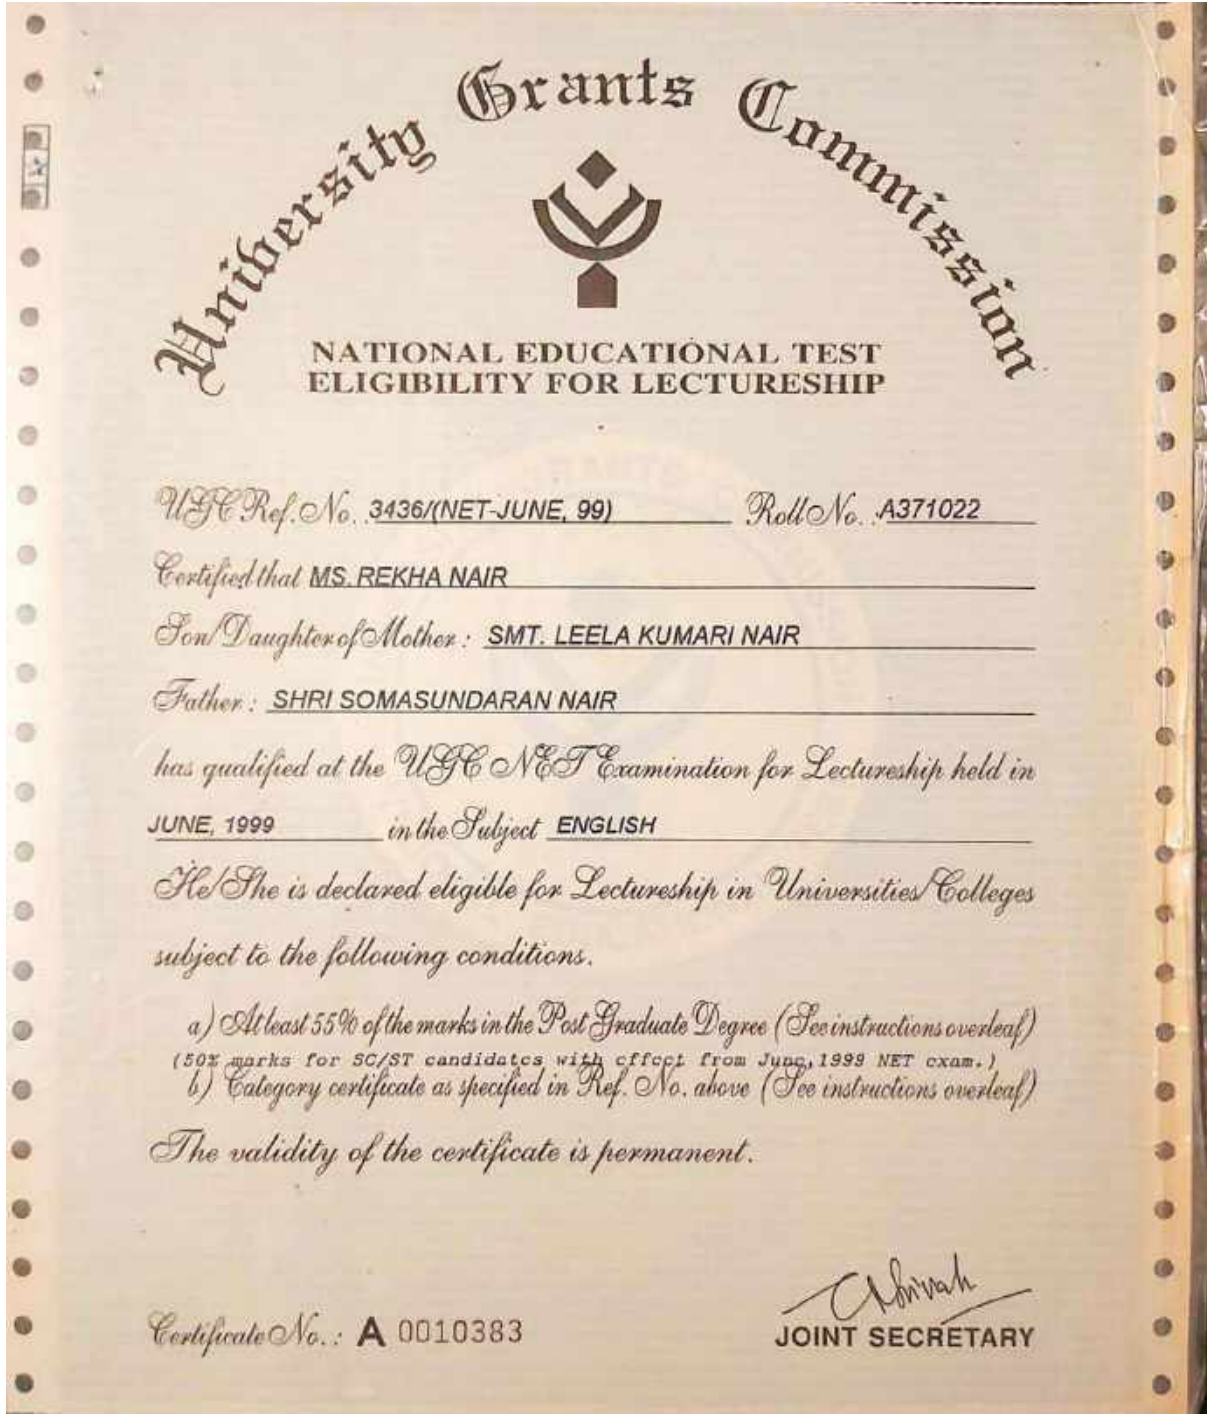 University Grants Commission
NATIONAL EDUCATIONAL TEST
ELIGIBILITY FOR LECTURESHIP
UGC Ref. No. 3436/(NET-JUNE, 99) Roll No. : A371022
Certified that MS. REKHA NAIR
Son/Daughter of Mother : SMT. LEELA KUMARI NAIR
Father : SHRI SOMASUNDARAN NAIR
has qualified at the UGC NET Examination for Lectureship held in
JUNE, 1999 in the Subject ENGLISH
He/She is declared eligible for Lectureship in Universities/Colleges
subject to the following conditions.
a) At least 55% of the marks in the Post Graduate Degree (See instructions overleaf)
(50% marks for SC/ST candidates with effect from June, 1999 NET exam.)
b) Category certificate as specified in Ref. No. above (See instructions overleaf)
The validity of the certificate is permanent.
Certificate No. : A 0010383
JOINT SECRETARY